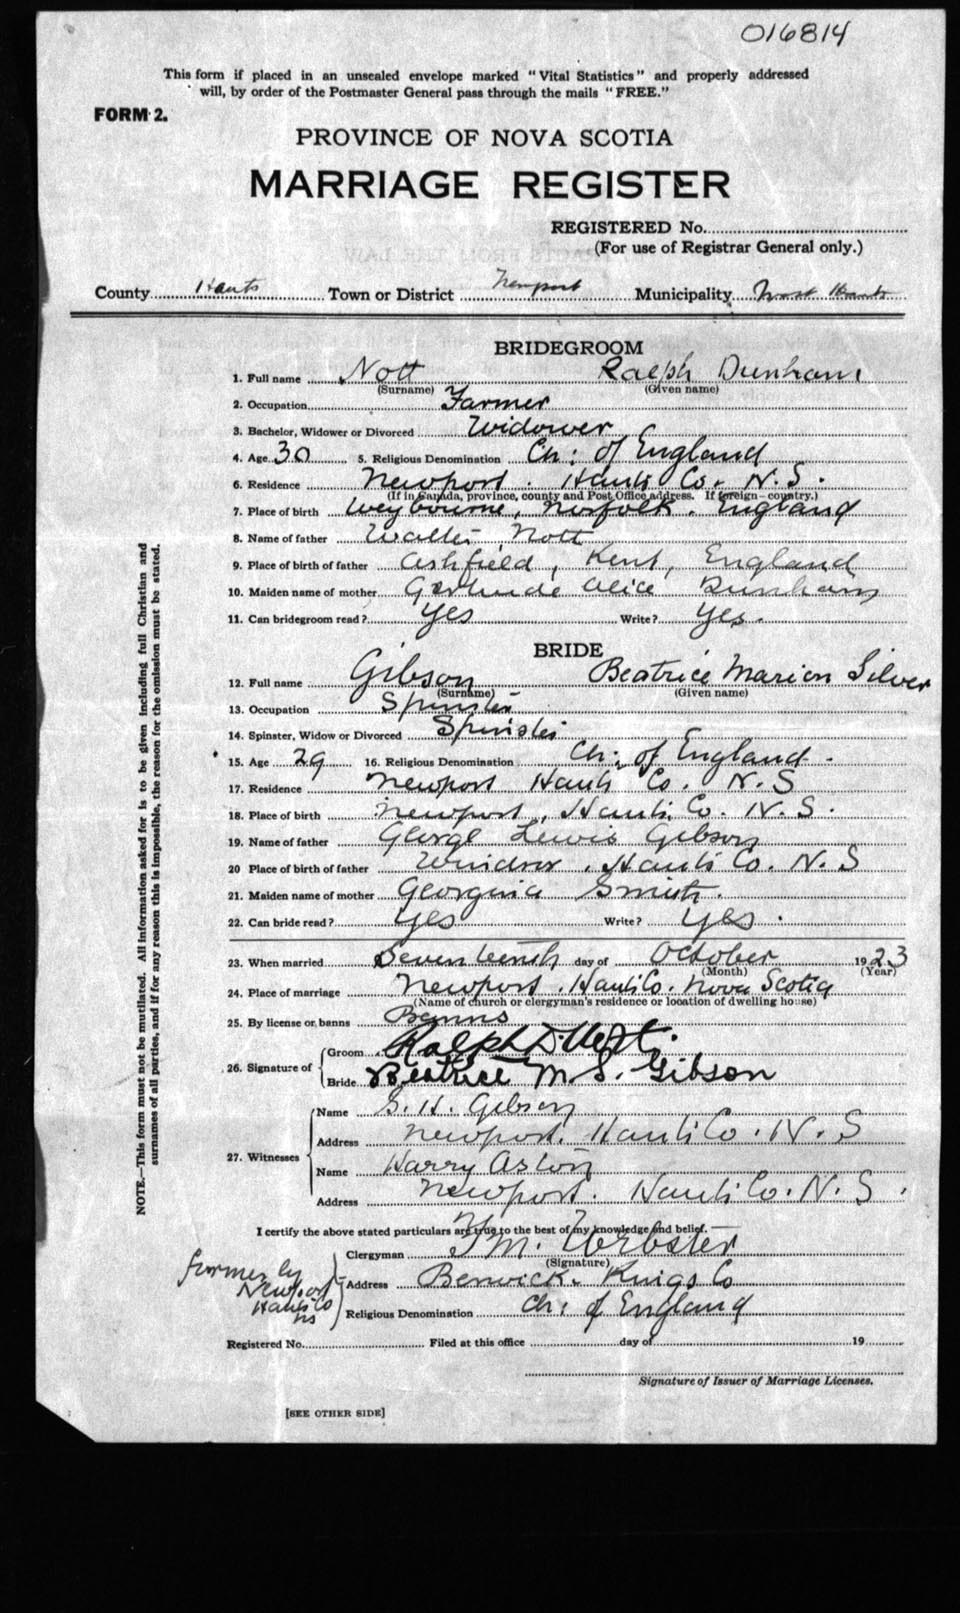 016814
This form if placed in an unsealed envelope marked "Vital Statistics" and properly addressed
will, by order of the Postmaster General pass through the mails "FREE."
FORM 2.
PROVINCE OF NOVA SCOTIA
MARRIAGE REGISTER
REGISTERED No.
(For use of Registrar General only.)
County Hants Town or District Newport Municipality West Hants
BRIDEGROOM
1. Full name Nott Ralph Dunham
(Surname) (Given name)
2. Occupation Farmer
3. Bachelor, Widower or Divorced Widower
4. Age 30 5. Religious Denomination Ch: of England
6. Residence Newport. Hants Co. N.S.
(If in Canada, province, county and Post Office address. If foreign—country.)
7. Place of birth Weybourne, Norfolk. England
8. Name of father Walter Nott
9. Place of birth of father Ashfield, Kent, England
10. Maiden name of mother Gertrude Alice Dunham
11. Can bridegroom read? Yes Write? Yes.
BRIDE
12. Full name Gibson Beatrice Marion Silver
(Surname) (Given name)
13. Occupation Spinster
14. Spinster, Widow or Divorced Spinster
15. Age 29 16. Religious Denomination Ch: of England.
17. Residence Newport Hants Co. N.S
18. Place of birth Newport, Hants Co. N.S.
19. Name of father George Lewis Gibson
20 Place of birth of father Windsor, Hants Co. N.S
21. Maiden name of mother Georgina Smith.
22. Can bride read? Yes Write? Yes.
23. When married Seventeenth day of October 1923
(Month) (Year)
24. Place of marriage Newport, Hants Co. Nova Scotia
(Name of church or clergyman's residence or location of dwelling house)
25. By license or banns Banns
26. Signature of Groom Ralph D. Nott.
Bride Beatrice M. S. Gibson
27. Witnesses Name S. H. Gibson
Address Newport. Hants Co. N.S
Name Harry Aston
Address Newport. Hants Co. N.S.
I certify the above stated particulars are true to the best of my knowledge and belief.
Clergyman T M. Webster
(Signature)
Address Berwick. Kings Co
Religious Denomination Ch: of England
formerly
Newport
Hants Co
NS
Registered No. Filed at this office day of 19
Signature of Issuer of Marriage Licenses.
[SEE OTHER SIDE]
NOTE.—This form must not be mutilated. All information asked for is to be given including full Christian and
surnames of all parties, and if for any reason this is impossible, the reason for the omission must be stated.